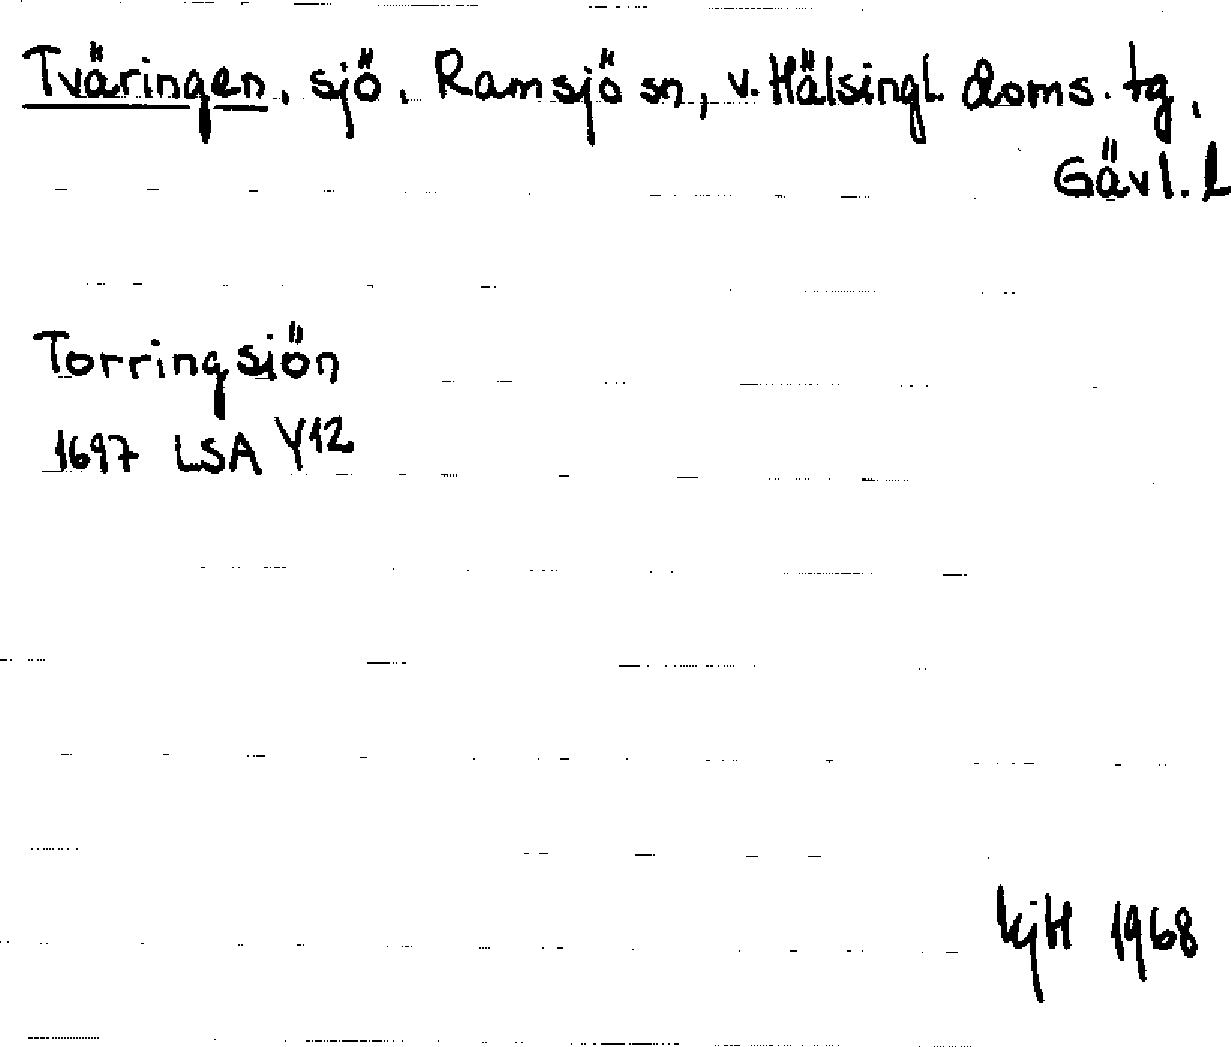 Tväringen, sjö, Ramsjö sn, v. Hälsingl. doms. tg,
Gävl. l
Torringsjön
1697 LSA Y12
KjH 1968